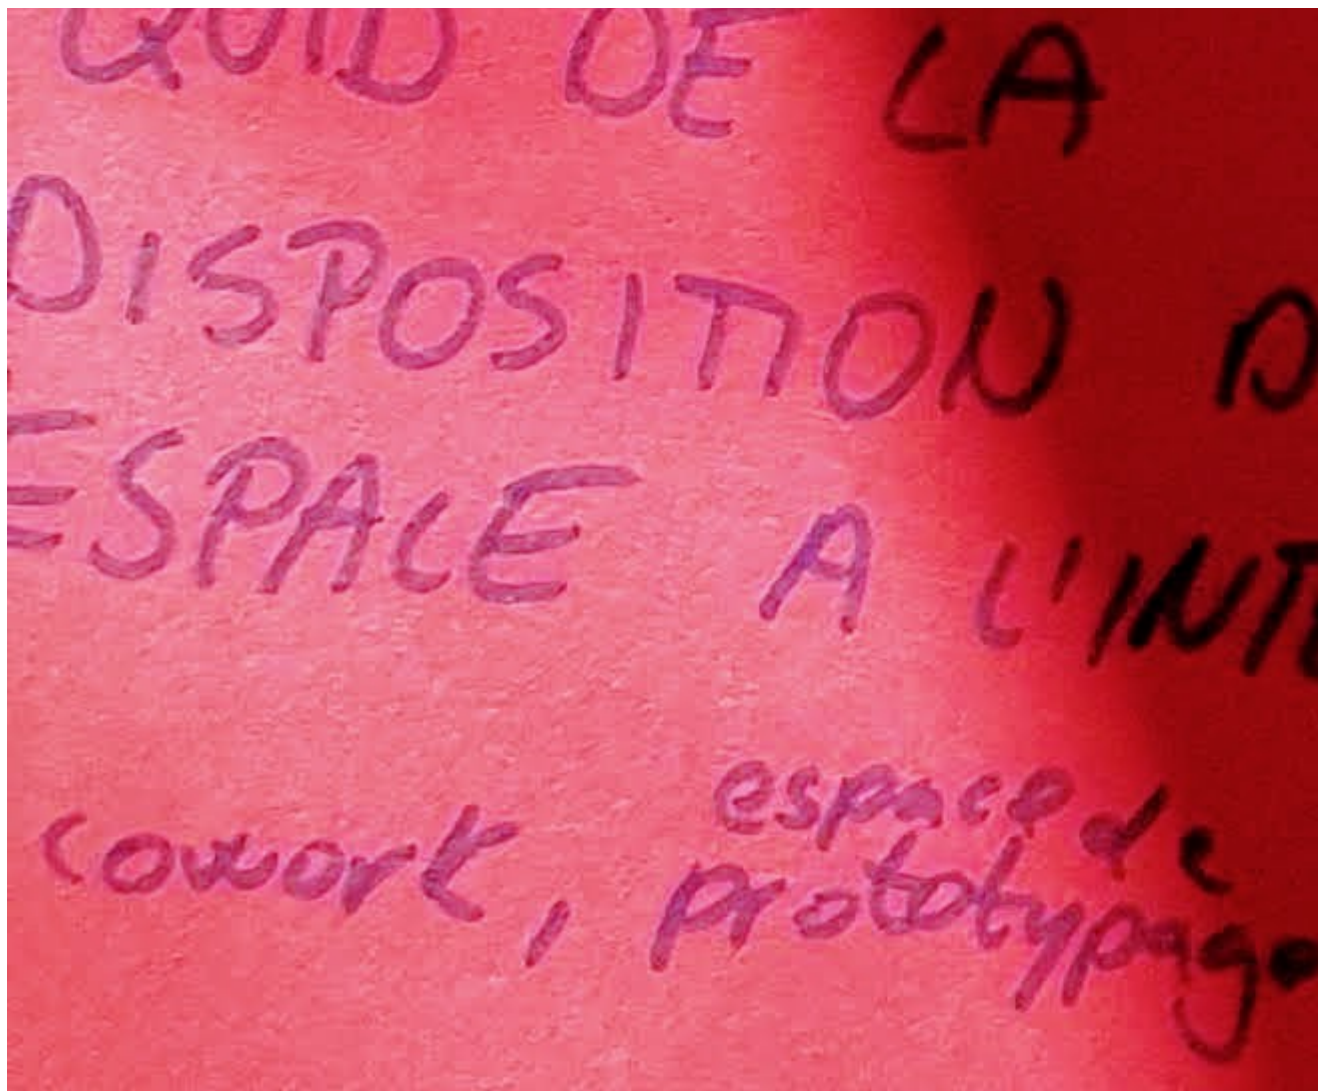 QUID DE LA
DISPOSITION D
ESPACE A L'INTE
espace de
cowork, prototypage